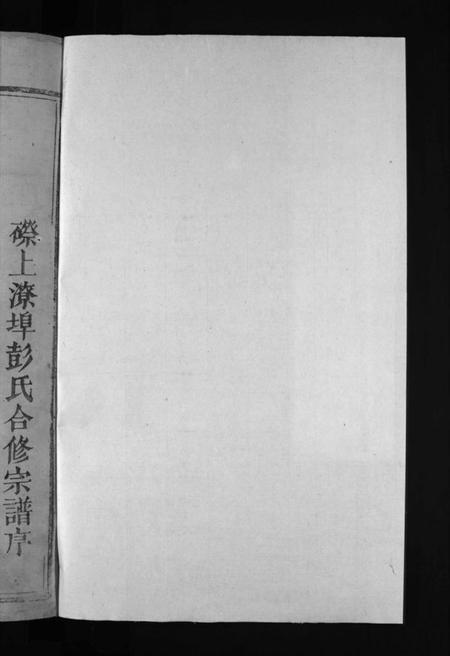 磜上潦埠彭氏合修宗譜序